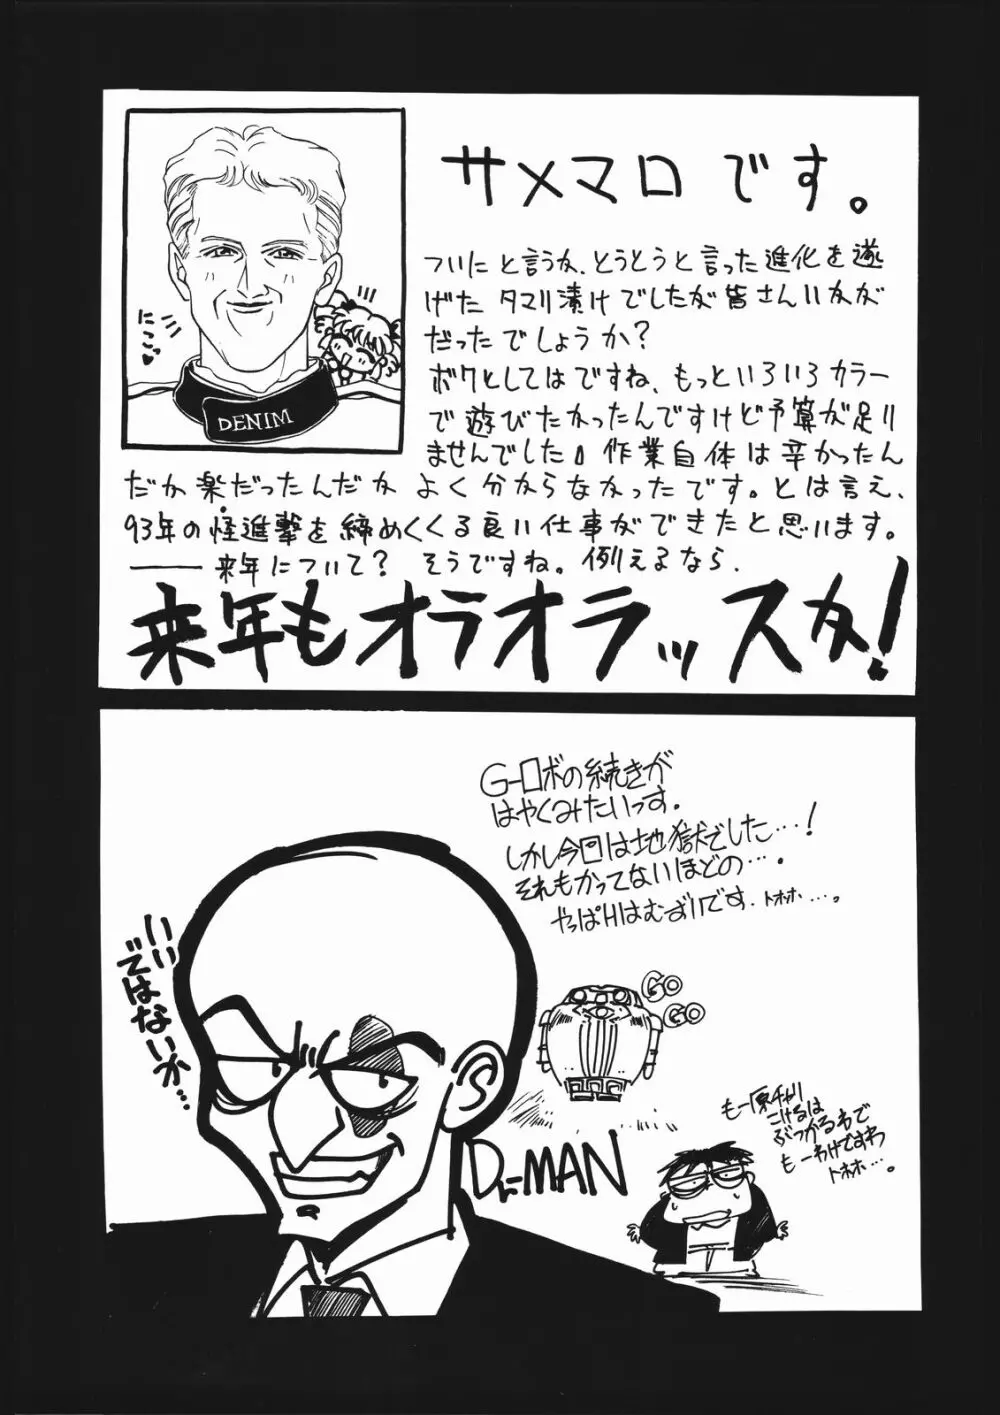 サメマロです。
ついにと言うか、とうとうと言った進化を遂
げたタマリ漬けでしたが皆さんいかが
だったでしょうか？
ボクとしてはですね、もっといろいろカラー
で遊びたかったんですけど予算が足り
ませんでした。作業自体は辛かったん
だか楽だったんだか よく分からなかったです。とは言え、
93年の怪進撃を締めくくる良い仕事ができたと思います。
── 来年について？ そうですね。例えるなら、
来年もオラオラッスか！
にこっ♥
DENIM
G-ロボの続きが
はやくみたいっす。
しかし今回は地獄でした…！
それもかってないほどの…。
やっぱHはむずいです。トホホ…。
いい
ではないか…
GO
GO
Dr-MAN
もー原チャリ
こけるは
ぶつかるわで
もーわけですわ
トホホ…。